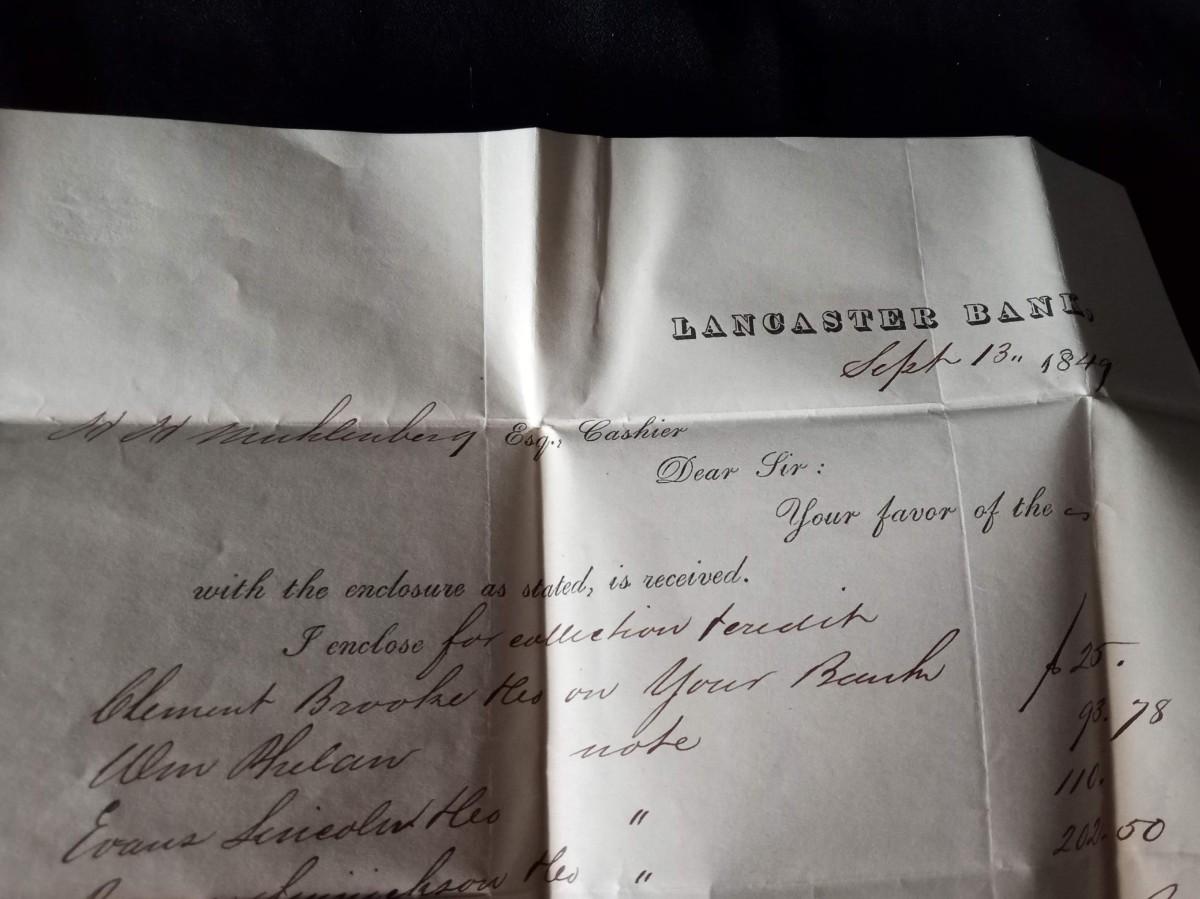 LANCASTER BANK,
Sept 13,, 1849
H H Muhlenberg Esq., Cashier
Dear Sir:
Your favor of the
with the enclosure as stated, is received.
I enclose for collection & credit
Clement Brooke &Co on Your Bank $ 25.
Wm Phelan note 93.78
Evans Lincoln &Co " 110.
&Co " 202.50